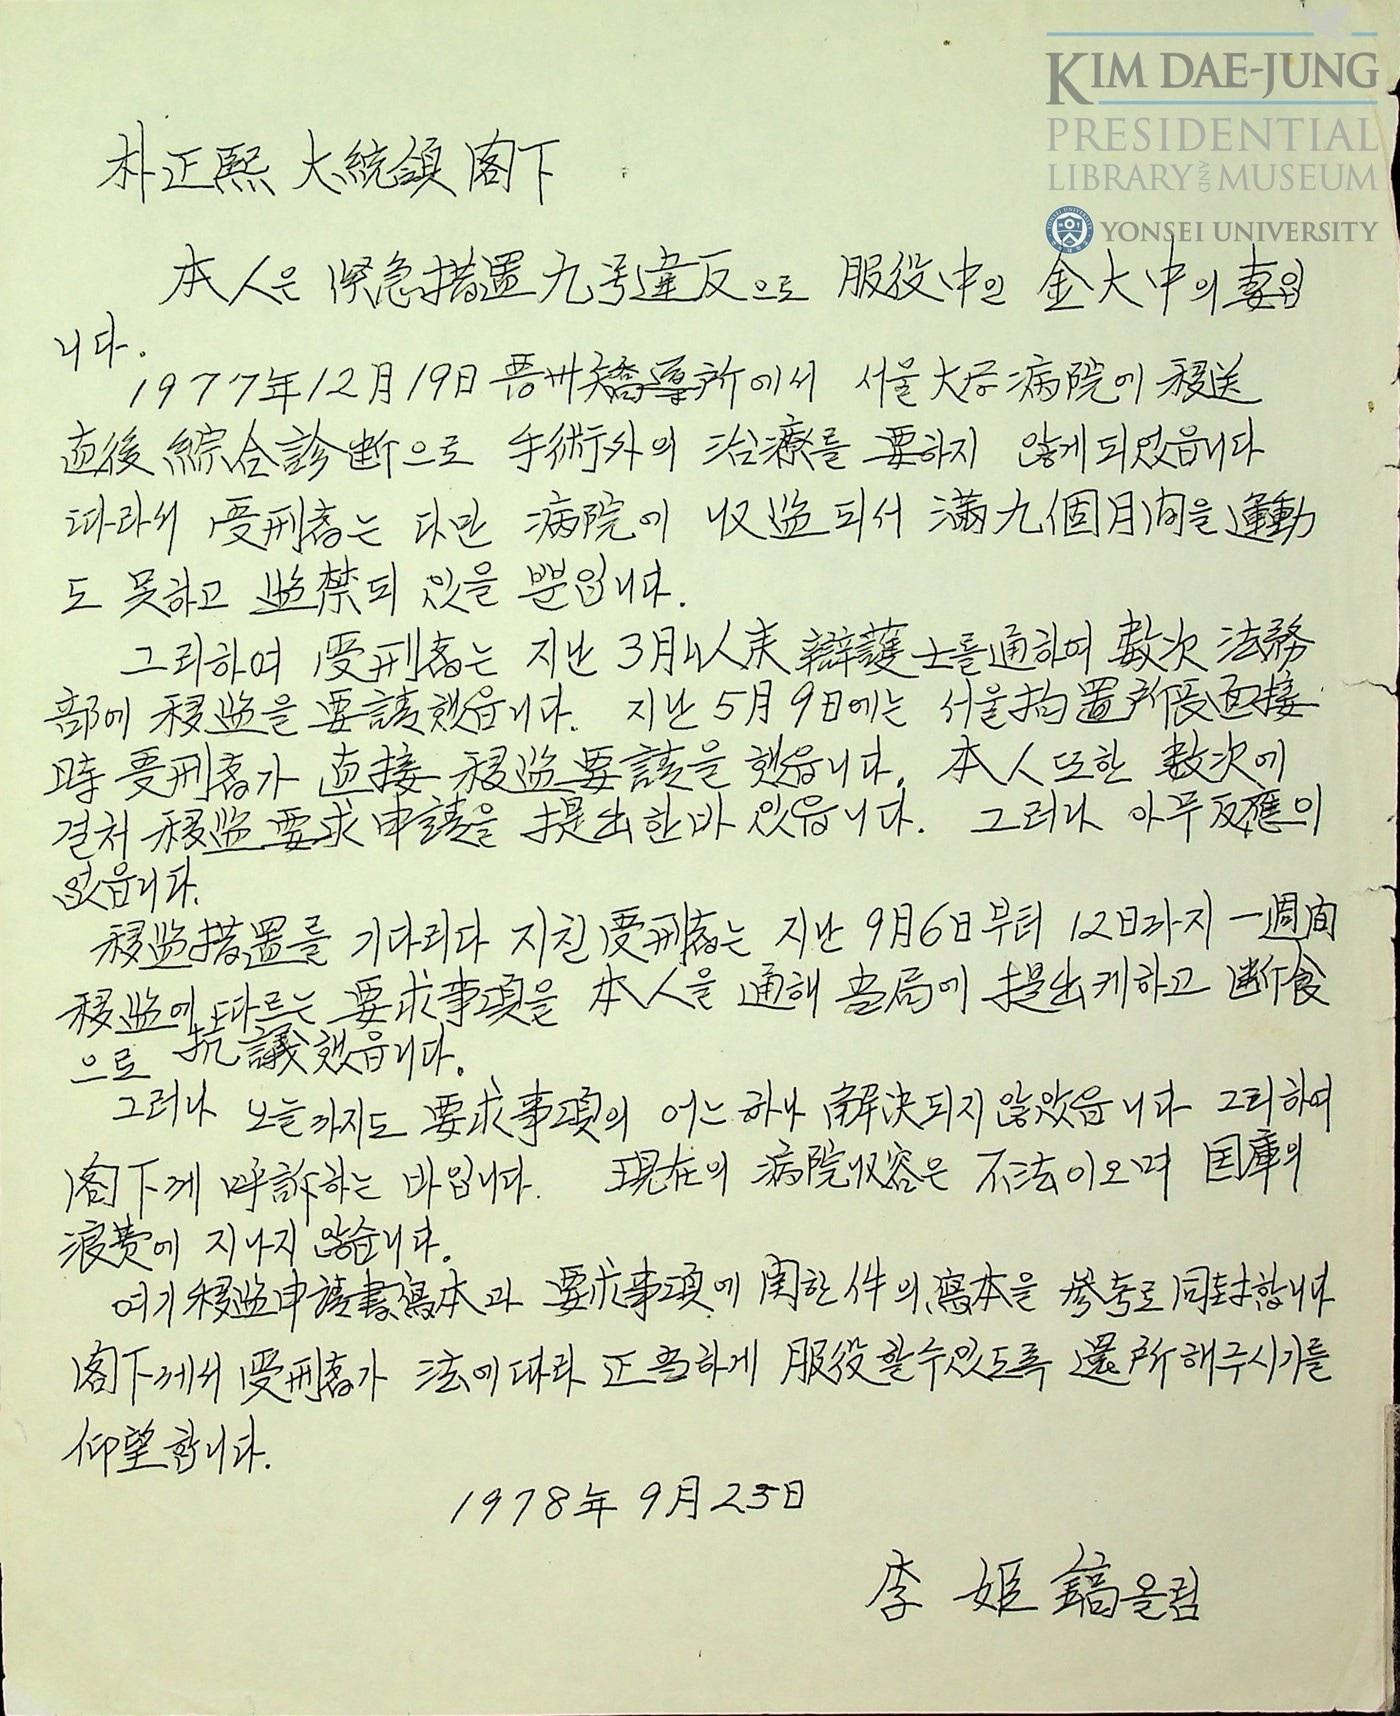 KIM DAE-JUNG
PRESIDENTIAL
LIBRARY AND MUSEUM
YONSEI UNIVERSITY
朴正熙 大統領 閣下
本人은 緊急措置九号違反으로 服役中인 金大中의 妻입
니다.
1977年12月19日 晋州矯導所에서 서울大学病院에 移送
直後 綜合診断으로 手術外의 治療를 要하지 않게되었읍니다
따라서 受刑者는 다만 病院에 収监되서 滿九個月间을 運動
도 못하고 监禁되 있을 뿐입니다.
그리하여 受刑者는 지난 3月 辯護士를 通하여 数次 法務
部에 移监을 要請했읍니다. 지난 5月 9日에는 서울拘置所長面接
時 受刑者가 直接 移监要請을 했읍니다. 本人또한 数次에
걸처 移监要求申請을 提出한바 있읍니다. 그러나 아무反應이
없읍니다.
移监措置를 기다리다 지친 受刑者는 지난 9月6日부터 12日까지 一週间
移监에 따르는 要求事項을 本人을 通해 当局에 提出케하고 断食
으로 抗議했읍니다.
그러나 오늘까지도 要求事項의 어느하나 解決되지않았읍니다 그리하여
閣下께 呼訴하는 바입니다. 現在의 病院収容은 不法이오며 国庫의
浪費에 지나지 않습니다.
여기 移监申請書寫本과 要求事項에 関한 件의 寫本을 參考로 同封합니다
閣下께서 受刑者가 法에따라 正当하게 服役할수있도록 還所해주시기를
仰望합니다.
1978年 9月 25日
李 姬 鎬올림